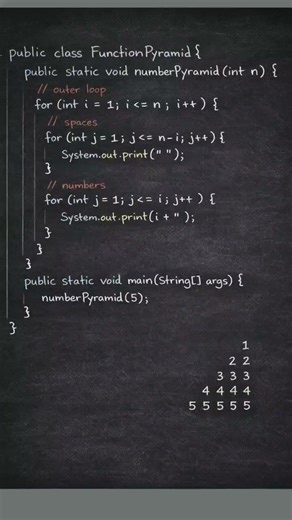 public class FunctionPyramid {
public static void numberPyramid(int n) {
// outer loop
for (int i = 1; i <= n ; i++ ) {
// spaces
for (int j = 1; j <= n-i; j++) {
System.out.print(" ");
}
// numbers
for (int j = 1; j <= i; j++ ) {
System.out.print(i + " );
}
}
}
public static void main(String[] args) {
numberPyramid(5);
}
}
1
2 2
3 3 3
4 4 4 4
5 5 5 5 5